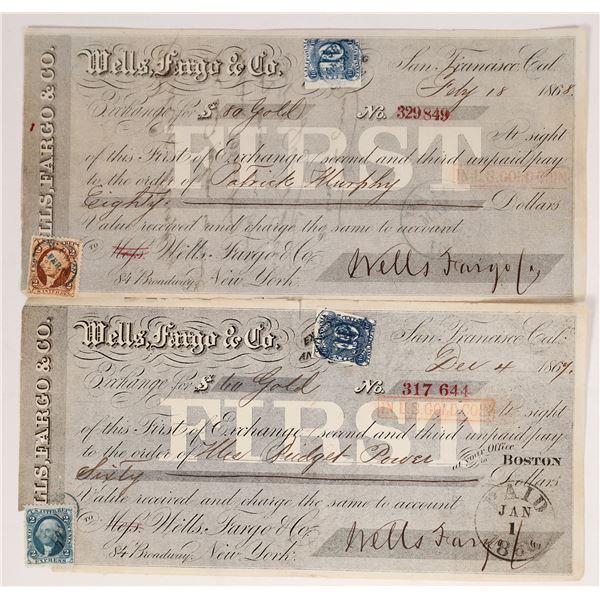 WELLS, FARGO & CO.
Wells, Fargo & Co.
San Francisco, Cal.
Feby 18 1868.
Exchange for $ 80 Gold
No. 329849
At sight
FIRST
of this First of Exchange (second and third unpaid) pay
IN U.S. GOLD COIN
to the order of Patrick Murphy
Eighty Dollars
Value received and charge the same to account
TO Messrs. Wells, Fargo & Co.
84 Broadway, New York.
Wells Fargo &Co
ELLS, FARGO & CO.
Wells, Fargo & Co.
San Francisco, Cal.
Dec 4 1867.
Exchange for $ 60 Gold
No. 317 644
IN U.S. GOLD COIN
At sight
FIRST
of this First of Exchange (second and third unpaid) pay
to the order of Power
at your Office in BOSTON
Sixty Dollars
Value received and charge the same to account
PAID
JAN
1
TO Messrs. Wells, Fargo & Co.
84 Broadway, New York.
Wells Fargo &Co
2
EXPRESS
2